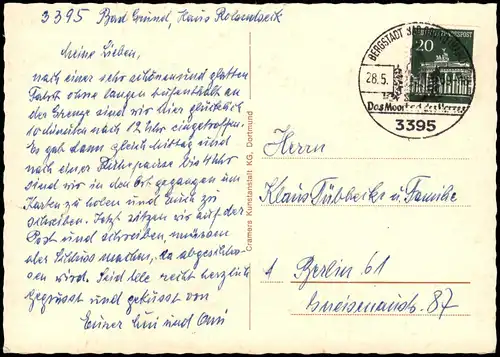 3395 Bad Grund, Haus Rolandseck
Meine Lieben,
nach einer sehr schönen und glatten
Fahrt ohne langen Aufenthalt an
der Grenze sind wir hier glücklich
10 Minuten nach 12 Uhr eingetroffen.
Es gab dann gleich Mittag und
nach einer Ruhepause bis 4 Uhr
sind wir in den Ort gegangen um
Karten zu holen und auch zu
schreiben. Jetzt sitzen wir auf der
Post und schreiben, müssen
aber Schluss machen, da abgeschlos-
sen wird. Seid alle recht herzlich
gegrüsst und geküsst von
Eurer und Omi
Cramers Kunstanstalt KG, Dortmund
BERGSTADT BAD GRUND
28.5.
Das Moorbad des Harzes
3395
20
BUNDESPOST
Herrn
Klaus u. Familie
1 Berlin 61
Gneisenaustr. 87